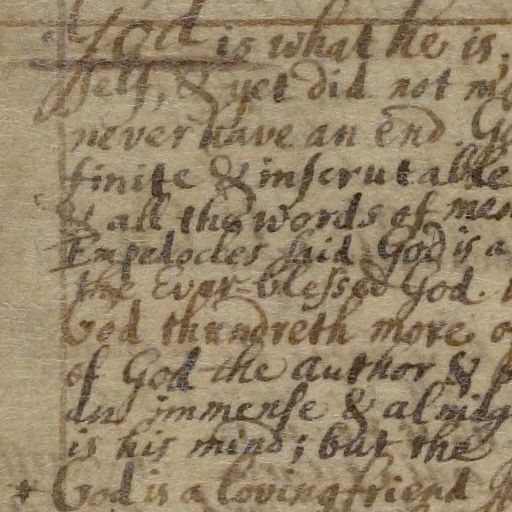 God is what he is,
self, & yet did not m
never have an end. Go
finite & inscrutable
& all the words of men
Empedocles said God is a
the Ever-blessed God
God thundreth more
of God the author &
an immense & almig
is his mind; but the
+ God is a loving friend